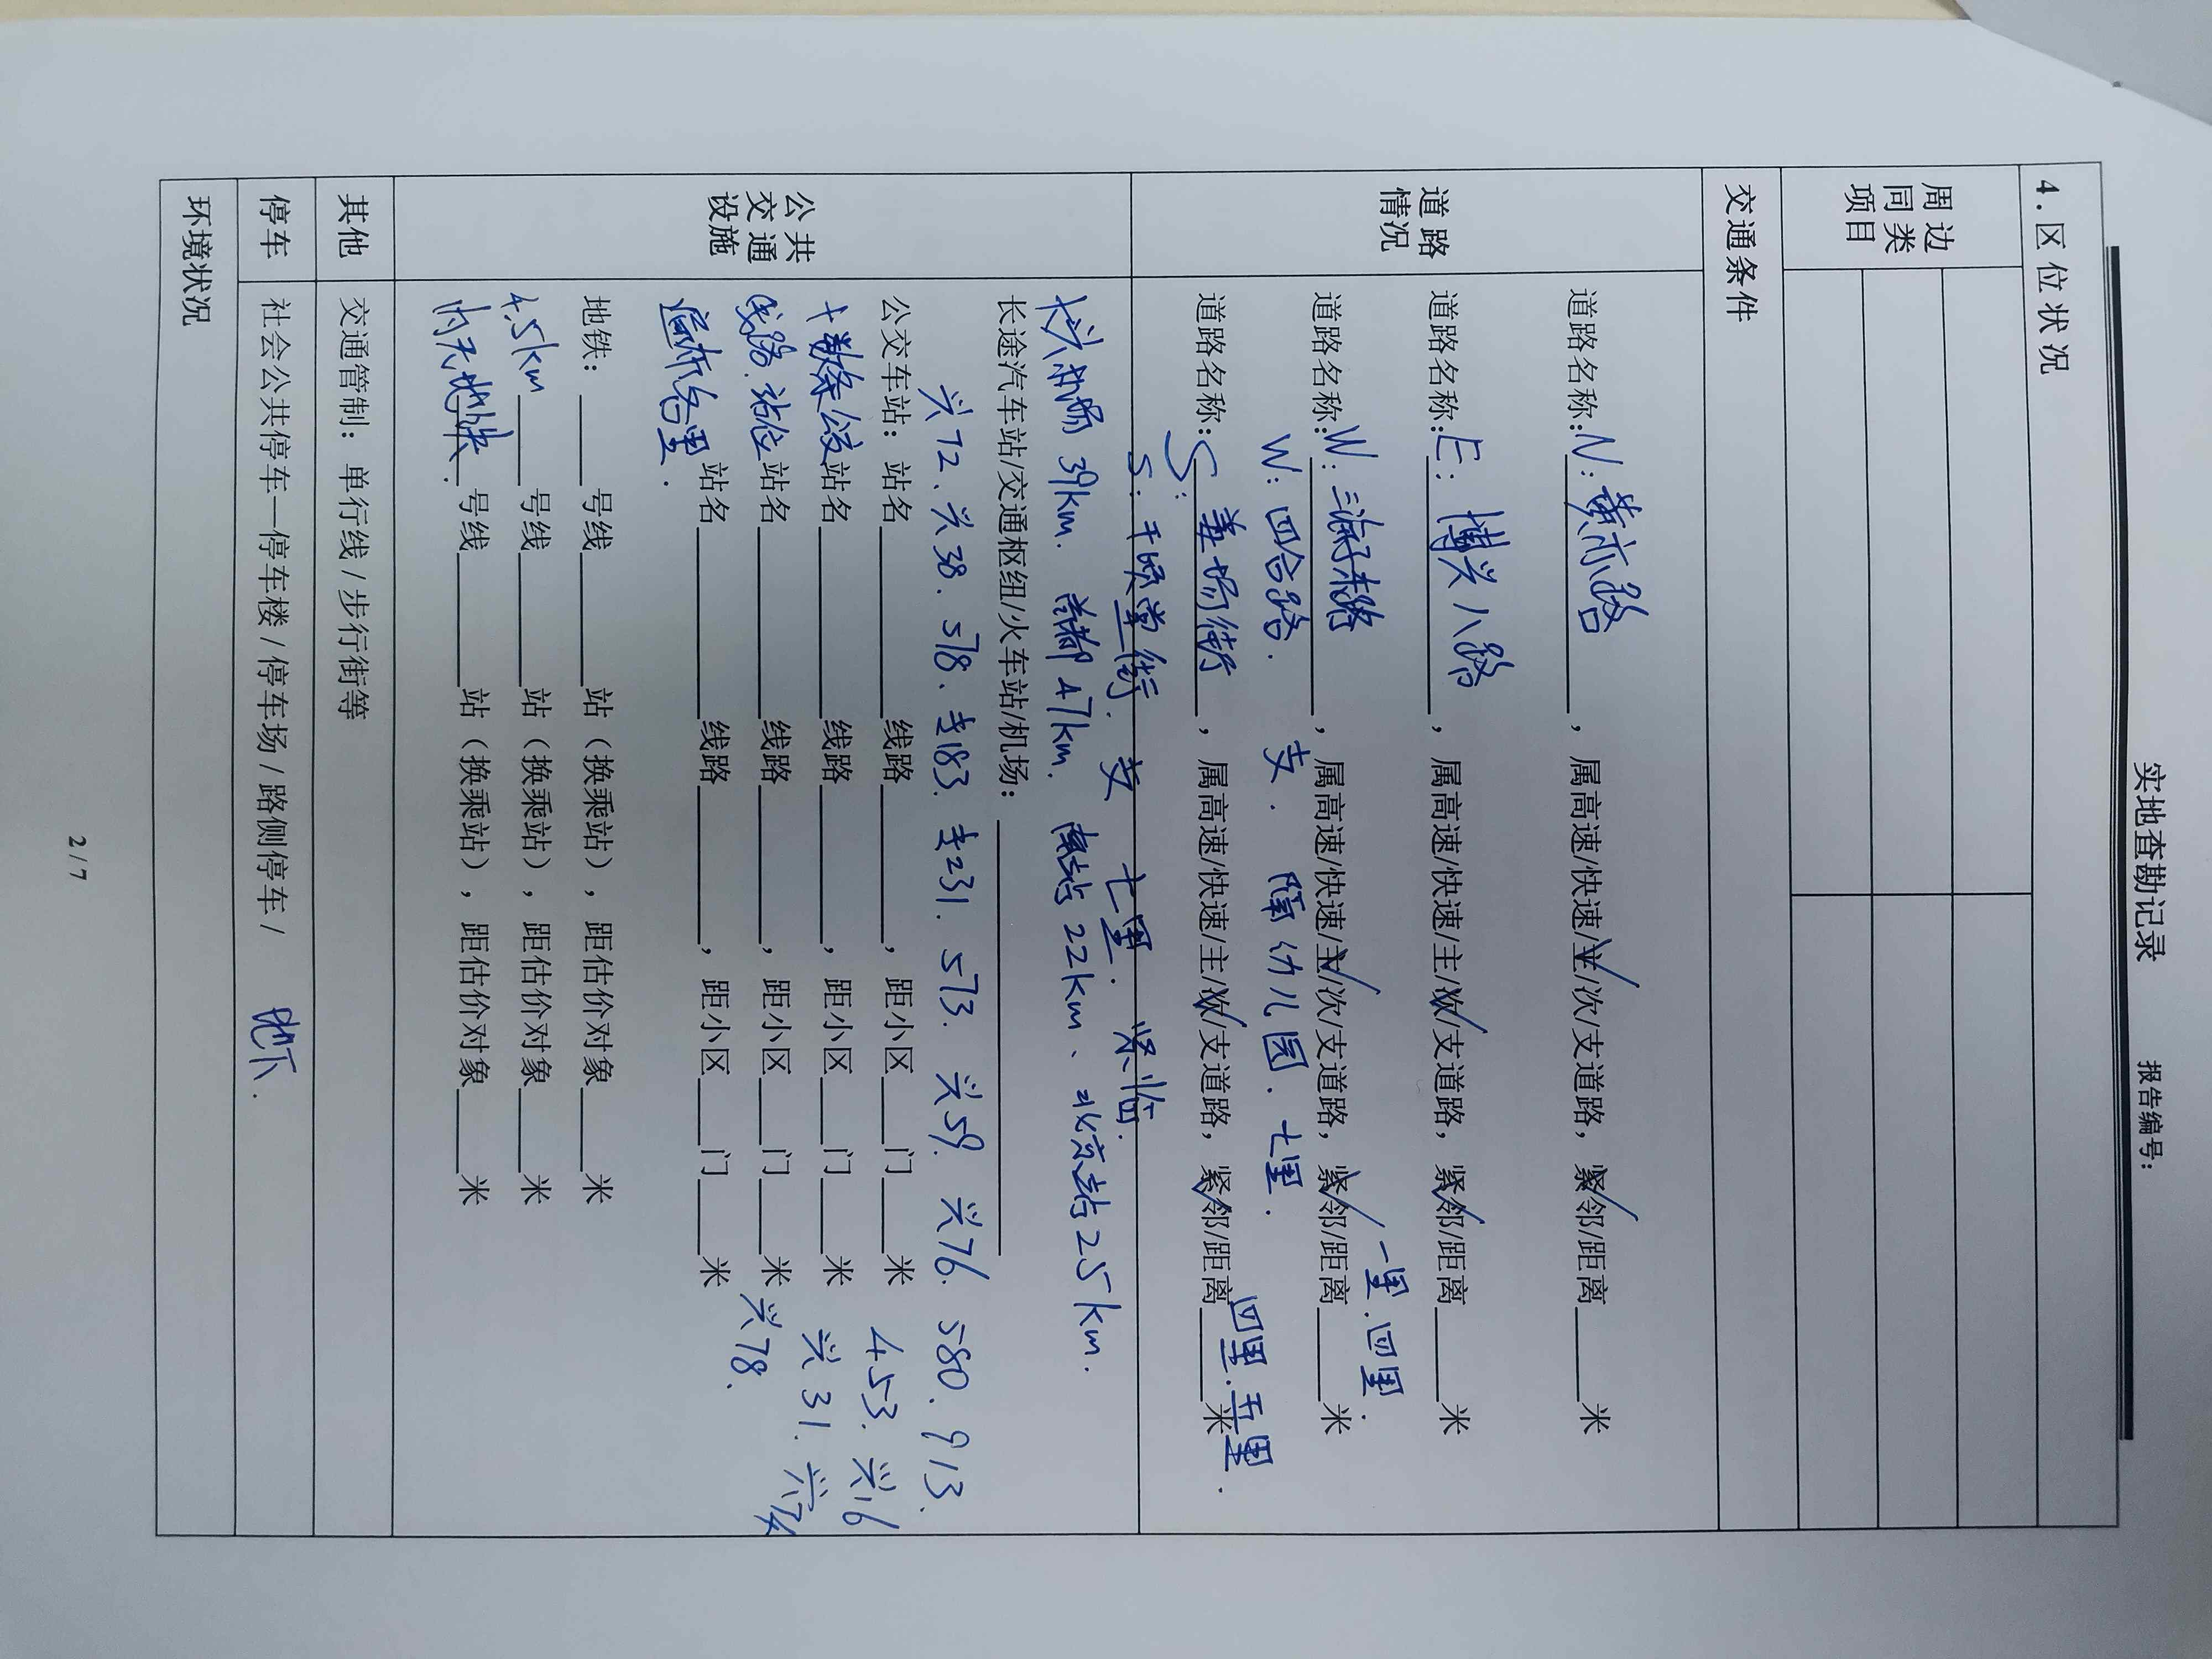 实地查勘记录 报告编号：
4.区位状况
周边同类项目
交通条件
道路情况
道路名称：N：黄亦路，属高速/快速/主/次/支道路，紧邻/距离____米
道路名称：E：博兴八路，属高速/快速/主/次/支道路，紧邻/距离____米
一里.四里.
道路名称：W：三海子东路，属高速/快速/主/次/支道路，紧邻/距离____米
W：四合路. 支. 隔幼儿园. 七里.
四里.五里.
道路名称：S：姜场街，属高速/快速/主/次/支道路，紧邻/距离____米
S：千顷堂街. 支 七里. 紧临.
公共交通设施
大兴机场 39km. 首都 47km. 南站 22km、北京站 25km.
长途汽车站/交通枢纽/火车站/机场：
兴72、兴38.578.专183.专231.573.兴59.兴76.580.913.
公交车站：站名____线路____，距小区____门____米 453.兴16
十数条公交站名____线路____，距小区____门____米 兴31.
线路.站位站名____线路____，距小区____门____米 兴78.
遍布各里.站名____线路____，距小区____门____米
地铁：____号线____站（换乘站），距估价对象____米
4.5km____号线____站（换乘站），距估价对象____米
内无地铁.号线____站（换乘站），距估价对象____米
其他 交通管制：单行线/步行街等
停车 社会公共停车—停车楼/停车场/路侧停车/ 地下.
环境状况
2/7